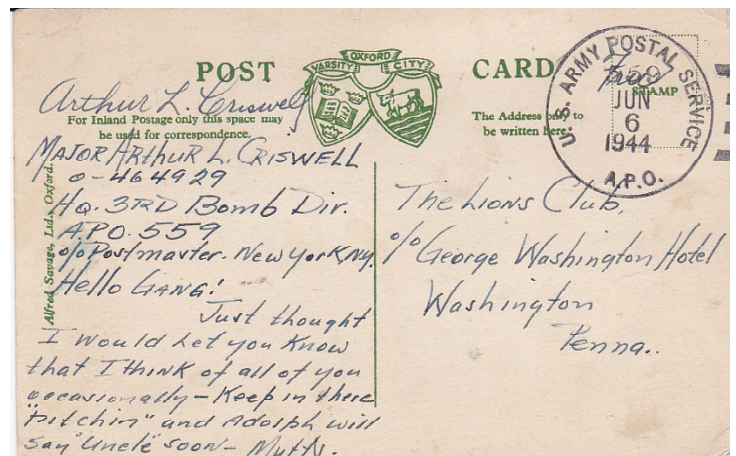 OXFORD
VARSITY CITY
POST CARD
Arthur L. Criswell
For Inland Postage only this space may
be used for correspondence.
The Address only to
be written here.
Free
559
STAMP
U.S. ARMY POSTAL SERVICE
JUN
6
1944
A.P.O.
Alfred Savage, Ltd., Oxford.
MAJOR ARTHUR L. CRISWELL
O-464929
Hq. 3RD Bomb Div.
A.P.O. 559
c/o Postmaster. New York, Ny.
Hello GANG!
Just thought
I would Let you Know
that I think of all of you
occasionally - Keep in there
"pitchin" and Adolph will
Say "Uncle" soon -
The Lions Club,
c/o George Washington Hotel
Washington
Penna..